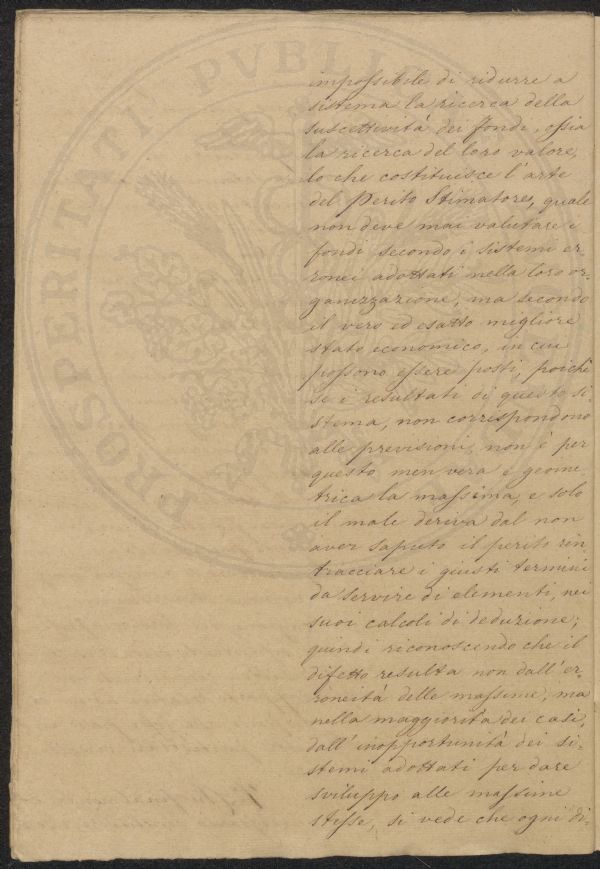 PROSPERITATI PVBLI
impossibile di ridurre a
sistema la ricerca della
suscettività dei fondi, ossia
la ricerca del loro valore,
lo che costituisce l'arte
del Perito Stimatore, quale
non deve mai valutare i
fondi secondo i sistemi er-
ronei adottati nella loro or-
ganizzazione, ma secondo
il vero ed esatto migliore
stato economico, in cui
possono essere posti, poichè
se i resultati di questo si-
stema, non corrispondono
alle previsioni, non è per
questo men vera e geome-
trica la massima, e solo
il male deriva dal non
aver saputo il perito rin-
tracciare i giusti termini
da servire di elementi, nei
suoi calcoli di deduzione;
quindi riconoscendo che il
difetto resulta non dall'er-
roneità delle massime, ma
nella maggiorità dei casi,
dall'inopportunità dei si-
stemi adottati per dare
sviluppo alle massime
stesse, si vede che ogni di-